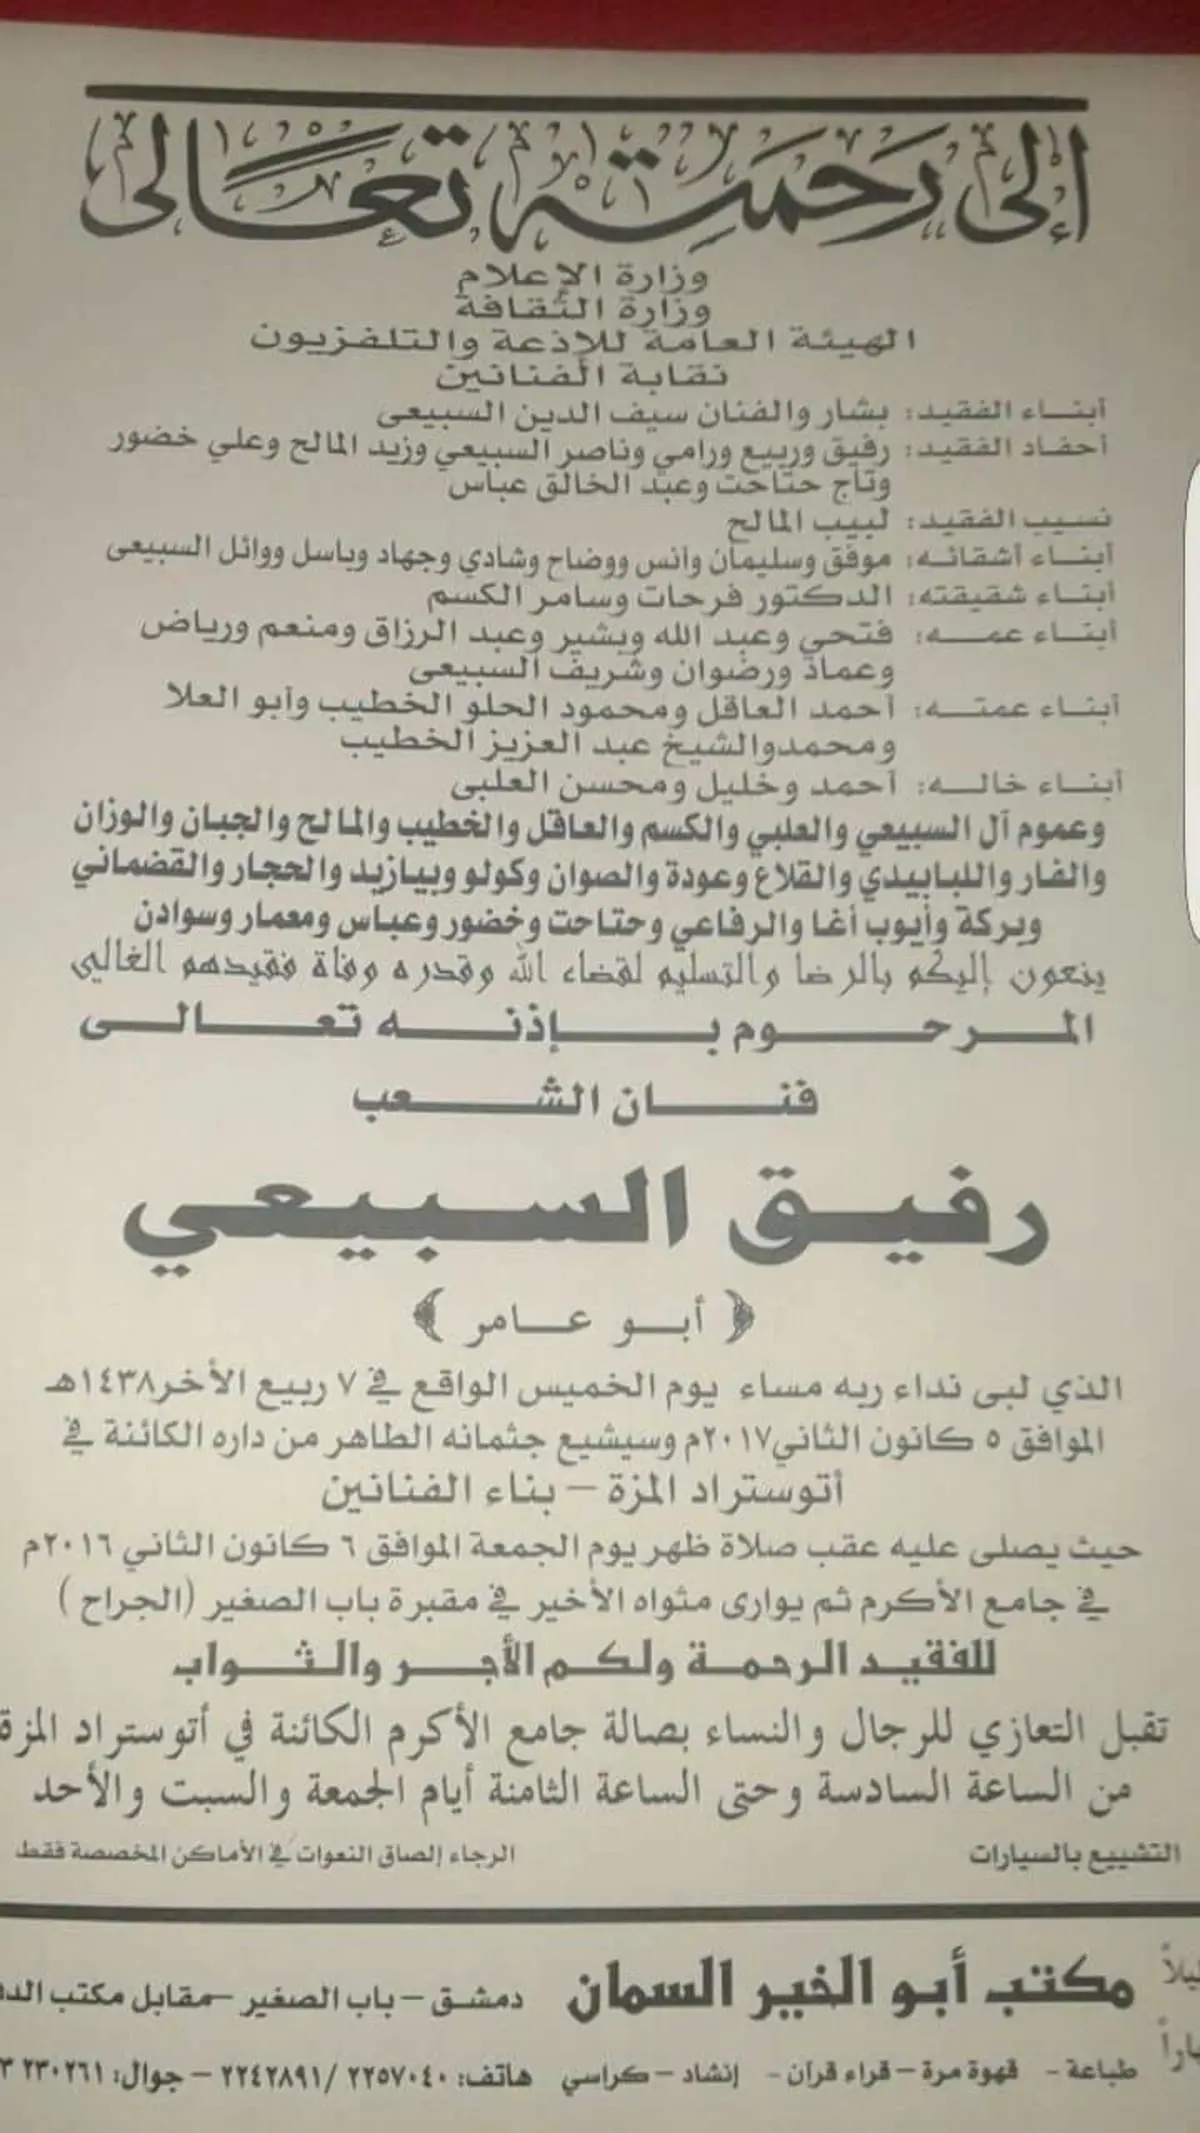 إلى رحمته تعالى
وزارة الإعلام
وزارة الثقافة
الهيئة العامة للإذعة والتلفزيون
نقابة الفنانين
أبناء الفقيد: بشار والفنان سيف الدين السبيعي
أحفاد الفقيد: رفيق وربيع ورامي وناصر السبيعي وزيد المالح وعلي خضور
وتاج حتاحت وعبد الخالق عباس
نسيب الفقيد: لبيب المالح
أبناء أشقائه: موفق وسليمان وأنس ووضاح وشادي وجهاد وباسل ووائل السبيعي
أبناء شقيقته: الدكتور فرحات وسامر الكسم
أبناء عمه: فتحي وعبد الله وبشير وعبد الرزاق ومنعم ورياض
وعماد ورضوان وشريف السبيعي
أبناء عمته: أحمد العاقل ومحمود الحلو الخطيب وأبو العلا
ومحمدوالشيخ عبد العزيز الخطيب
أبناء خاله: أحمد وخليل ومحسن العلبي
وعموم آل السبيعي والعلبي والكسم والعاقل والخطيب والمالح والجبان والوزان
والفار واللبابيدي والقلاع وعودة والصوان وكولو وبيازيد والحجار والقضماني
وبركة وأيوب أغا والرفاعي وحتاحت وخضور وعباس ومعمار وسوادن
ينعون إليكم بالرضا والتسليم لقضاء الله وقدره وفاة فقيدهم الغالي
المرحوم بإذنه تعالى
فنان الشعب
رفيق السبيعي
﴿ أبو عامر ﴾
الذي لبى نداء ربه مساء يوم الخميس الواقع في ٧ ربيع الأخر١٤٣٨هـ
الموافق ٥ كانون الثاني٢٠١٧م وسيشيع جثمانه الطاهر من داره الكائنة في
أتوستراد المزة – بناء الفنانين
حيث يصلى عليه عقب صلاة ظهر يوم الجمعة الموافق ٦ كانون الثاني ٢٠١٦م
في جامع الأكرم ثم يوارى مثواه الأخير في مقبرة باب الصغير (الجراح )
للفقيد الرحمة ولكم الأجر والثواب
تقبل التعازي للرجال والنساء بصالة جامع الأكرم الكائنة في أتوستراد المزة
من الساعة السادسة وحتى الساعة الثامنة أيام الجمعة والسبت والأحد
التشييع بالسيارات الرجاء إلصاق النعوات في الأماكن المخصصة فقط
مكتب أبو الخير السمان دمشق – باب الصغير –مقابل مكتب
طباعة - قهوة مرة – قراء قرآن - إنشاد – كراسي هاتف: ٢٢٥٧٠٤٠ /٢٢٤٢٨٩١ – جوال: ٢٣٠٢٦١